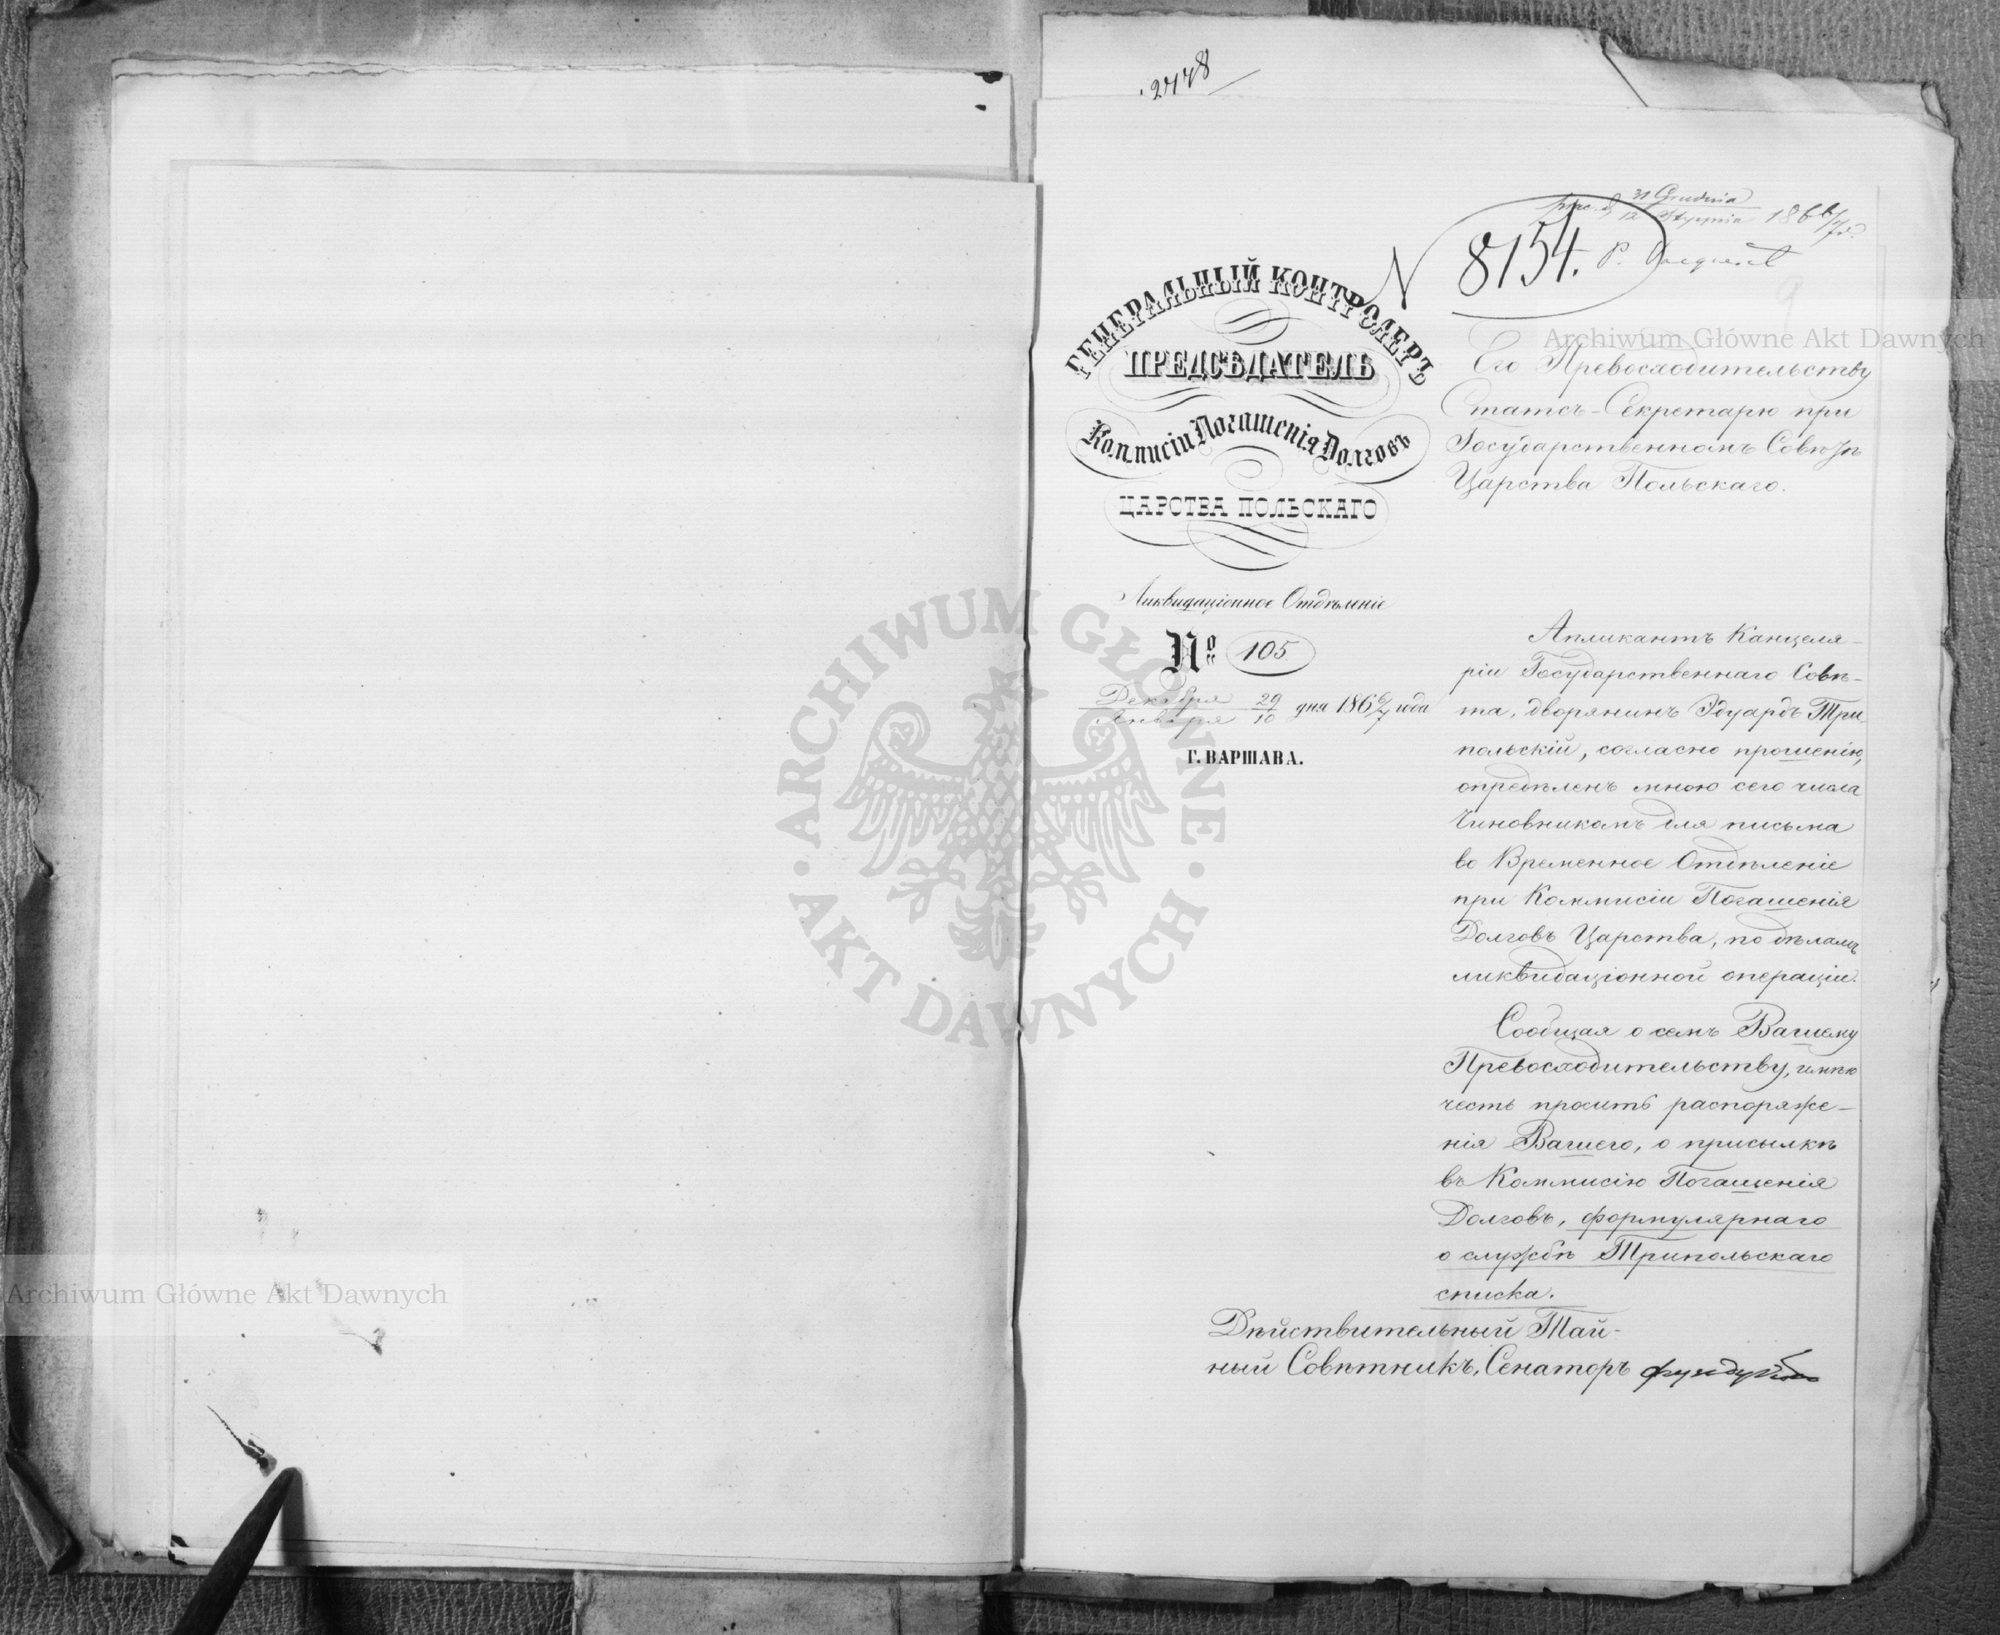 2778
31 Grudnia
12 Stycznia 1866/7 r.
N 8154.
9
ГЕНЕРАЛЬНЫЙ КОНТРОЛЕРЪ
ПРЕДСѢДАТЕЛЬ
Коммисіи Погашенія Долговъ
ЦАРСТВА ПОЛЬСКАГО
Ликвидаціонное Отдѣленіе
№ 105
Декабря 29
Января 10 дня 1866/7 года
Г. ВАРШАВА.
Его Превосходительству
Статсъ-Секретарю при
Государственномъ Совѣтѣ
Царства Польскаго.
Апликантъ Канцеля-
ріи Государственнаго Совѣ-
та, дворянинъ Эдуардъ Три-
польскій, согласно прошенію,
опредѣленъ мною сего числа
Чиновникомъ для письма
во Временное Отдѣленіе
при Коммисіи Погашенія
Долговъ Царства, по дѣламъ
ликвидаціонной операціи.
Сообщая о семъ Вашему
Превосходительству, имѣю
честь просить распоряже-
нія Вашего, о присылкѣ
въ Коммисію Погашенія
Долговъ, формулярнаго
о службѣ Трипольскаго
списка.
Дѣйствительный Тай-
ный Совѣтникъ, Сенаторъ Фундуклей
Archiwum Główne Akt Dawnych
Archiwum Główne Akt Dawnych
ARCHIWUM GŁÓWNE
AKT DAWNYCH